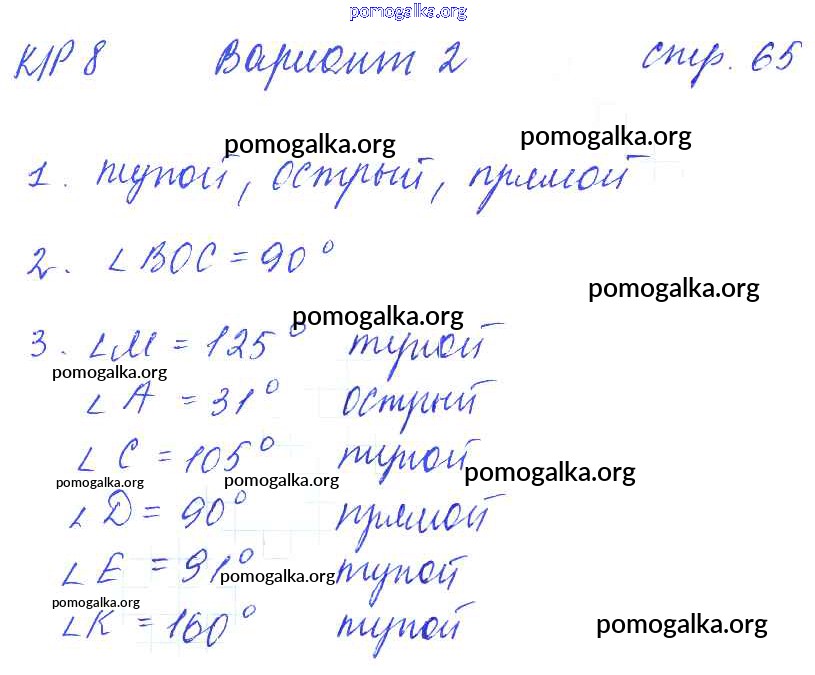 pomogalka.org
К/Р 8 Вариант 2 стр. 65
pomogalka.org pomogalka.org
1. тупой, острый, прямой
2. ∠ВОС = 90°
pomogalka.org
pomogalka.org
3. ∠М = 125° тупой
pomogalka.org
∠ А = 31° острый
∠ С = 105° тупой
pomogalka.org pomogalka.org pomogalka.org
∠ D = 90° прямой
∠ Е = 91° тупой
pomogalka.org
pomogalka.org
∠К = 160° тупой
pomogalka.org